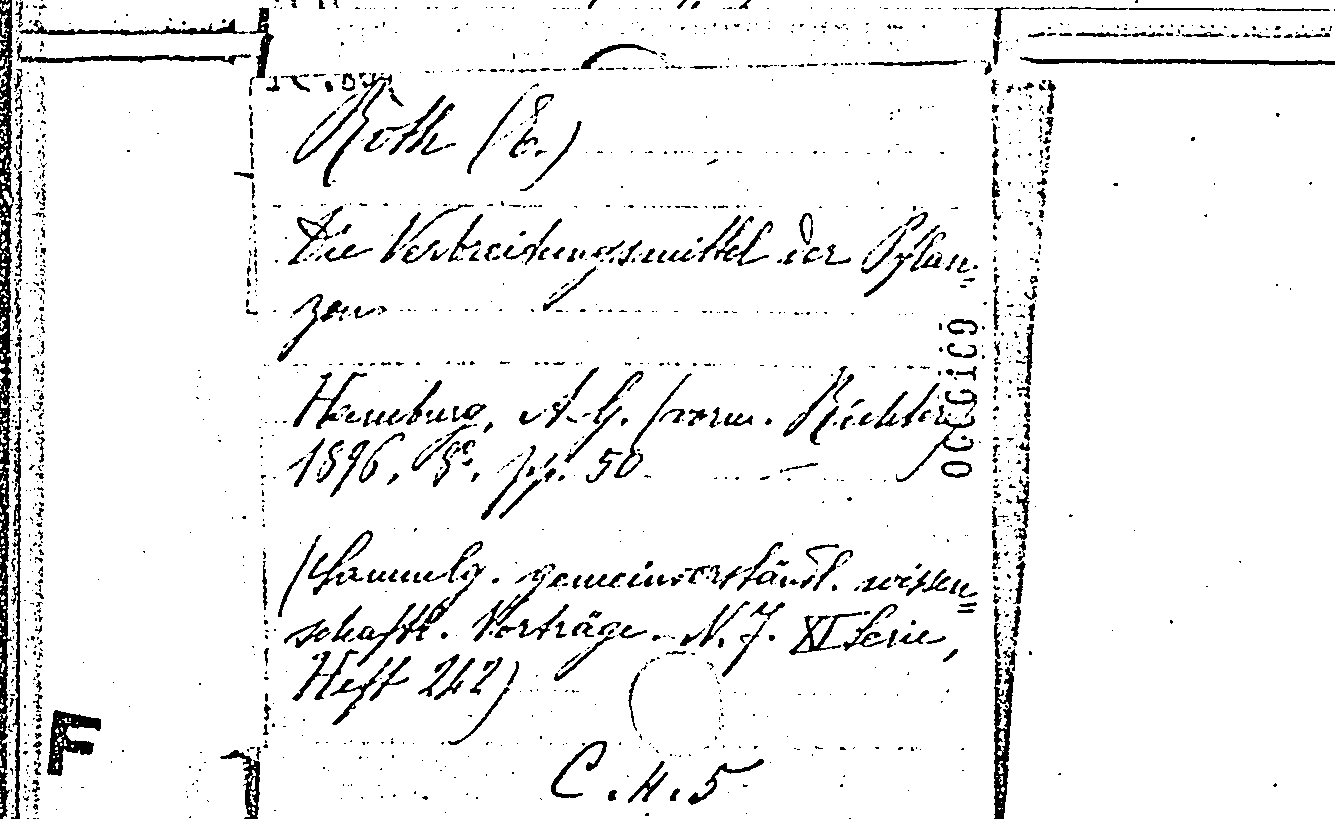 Roth (E.)
Die Verbreitungsmittel der Pflan=
zen
Hamburg, A.G. (vorm. Richter)
1896, 8º, pp. 50
(Sammlg. gemeinverständl. wissen=
schaftl. Vorträge. N. F. XI Serie,
Heft 242)
C.4.5
F